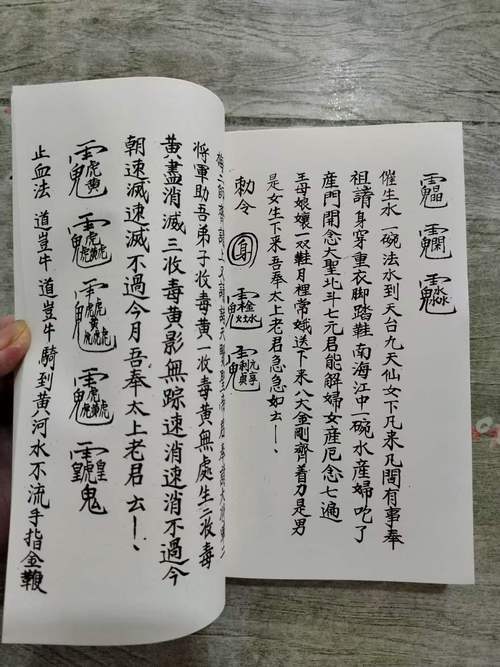 催生水一碗法水到天台九天仙女下凡來凡間有事奉
祖請身穿重衣脚踏鞋南海江中一碗水產婦吃了
產門開念大聖北斗七元君能解婦女產厄念七遍
王母娘孃一双鞋月裡常娥送下來八大金剛齊着力是男
是女生下來吾奉太上老君急急如去
勅令
將軍助吾弟子收毒黃一收毒黃無處生二收毒
黃盡消滅三收毒黃影無踪速消速消不過今
朝速滅速滅不過今月吾奉太上老君去
止血法 道豈牛 道豈牛騎到黃河水不流手指金鞭